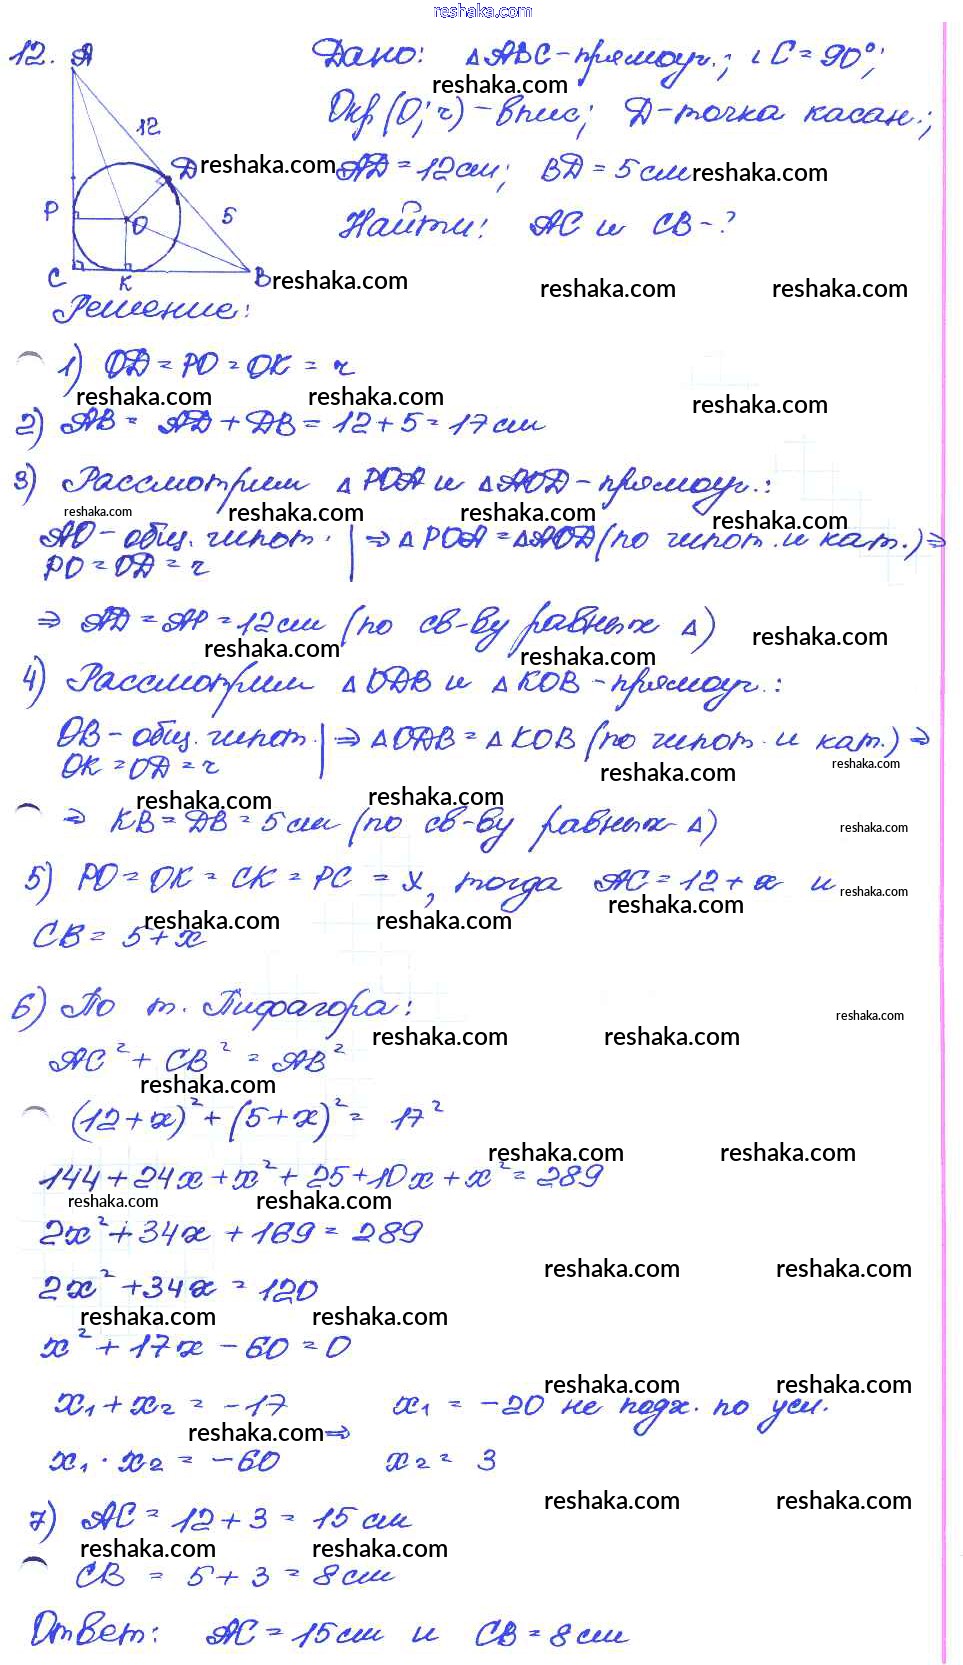 reshaka.com
12. A
Дано: △ABC - прямоуг.; ∠C = 90°;
reshaka.com reshaka.com
12
Окр (O; r) - впис; D - точка касан.;
D reshaka.com AD = 12 см; BD = 5 см reshaka.com
P O 5
Найти: AC и CB - ?
C K B reshaka.com reshaka.com reshaka.com
Решение:
1) OD = PO = OK = r
reshaka.com reshaka.com reshaka.com
2) AB = AD + DB = 12 + 5 = 17 см
3) Рассмотрим △POA и △AOD - прямоуг.:
reshaka.com reshaka.com reshaka.com reshaka.com
AO - общ. гипот. | ⇒ △POA = △AOD (по гипот. и кат.) ⇒
PO = OD = r
⇒ AD = AP = 12 см (по св-ву равных △)
reshaka.com reshaka.com reshaka.com
4) Рассмотрим △ODB и △KOB - прямоуг.:
OB - общ. гипот. | ⇒ △ODB = △KOB (по гипот. и кат.) ⇒
OK = OD = r
reshaka.com reshaka.com
reshaka.com reshaka.com
⇒ KB = DB = 5 см (по св-ву равных △) reshaka.com
5) PO = OK = CK = PC = x, тогда AC = 12 + x и reshaka.com
reshaka.com reshaka.com reshaka.com
CB = 5 + x
6) По т. Пифагора: reshaka.com
reshaka.com reshaka.com
AC² + CB² = AB²
reshaka.com
(12 + x)² + (5 + x)² = 17²
reshaka.com reshaka.com
144 + 24x + x² + 25 + 10x + x² = 289
reshaka.com reshaka.com
2x² + 34x + 169 = 289
reshaka.com reshaka.com
2x² + 34x = 120
reshaka.com reshaka.com
x² + 17x - 60 = 0
reshaka.com reshaka.com
x₁ + x₂ = -17 x₁ = -20 не подх. по усл.
reshaka.com ⇒
x₁ · x₂ = -60 x₂ = 3
reshaka.com reshaka.com
7) AC = 12 + 3 = 15 см
reshaka.com reshaka.com
CB = 5 + 3 = 8 см
Ответ: AC = 15 см и CB = 8 см